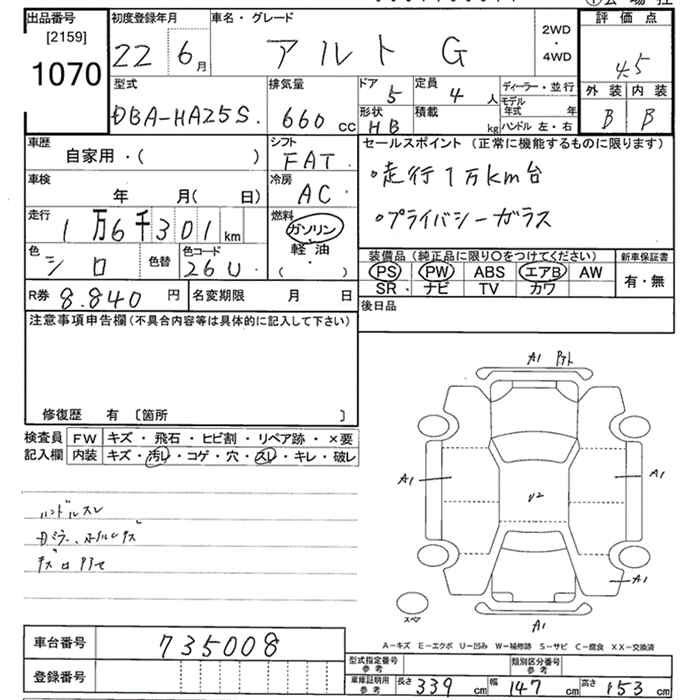 出品番号 初度登録年月 車名・グレード 評価点
[2159]
1070
22 6月 アルト G 2WD・4WD 4.5
型式 排気量 ドア 定員 ディーラー・並行 外装 内装
DBA-HA25S. 660 cc 5 4 人 モデル年式 年 B B
形状 積載
HB kg ハンドル 左・右
車歴 シフト セールスポイント (正常に機能するものに限ります)
自家用・( ) FAT
車検 冷房 ・走行1万km台
年 月( 日) AC
走行 燃料 ・プライバシーガラス
1万6千301km ガソリン・軽油・( )
色 色替 色コード 装備品 (純正品に限り○をつけてください) 新車保証書
シロ 26U PS PW ABS エアB AW 有・無
SR ナビ TV カワ
R券 8.840円 名変期限 月 日 後日品
注意事項申告欄(不具合内容等は具体的に記入して下さい)
修復歴 有 〔箇所 〕
検査員 FW キズ・飛石・ヒビ割・リペア跡・×要
記入欄 内装 キズ・汚レ・コゲ・穴・スレ・キレ・破レ
ハンドルスレ
A1
A1
A1
U2
A1
A1
スペア
A-キズ E-エクボ U-凹み W-補修跡 S-サビ C-腐食 XX-交換済
車台番号 735008
型式指定番号 参考 類別区分番号 参考
登録番号
車庫証明用 参考 長さ 339 cm 幅 147 cm 高さ 153 cm